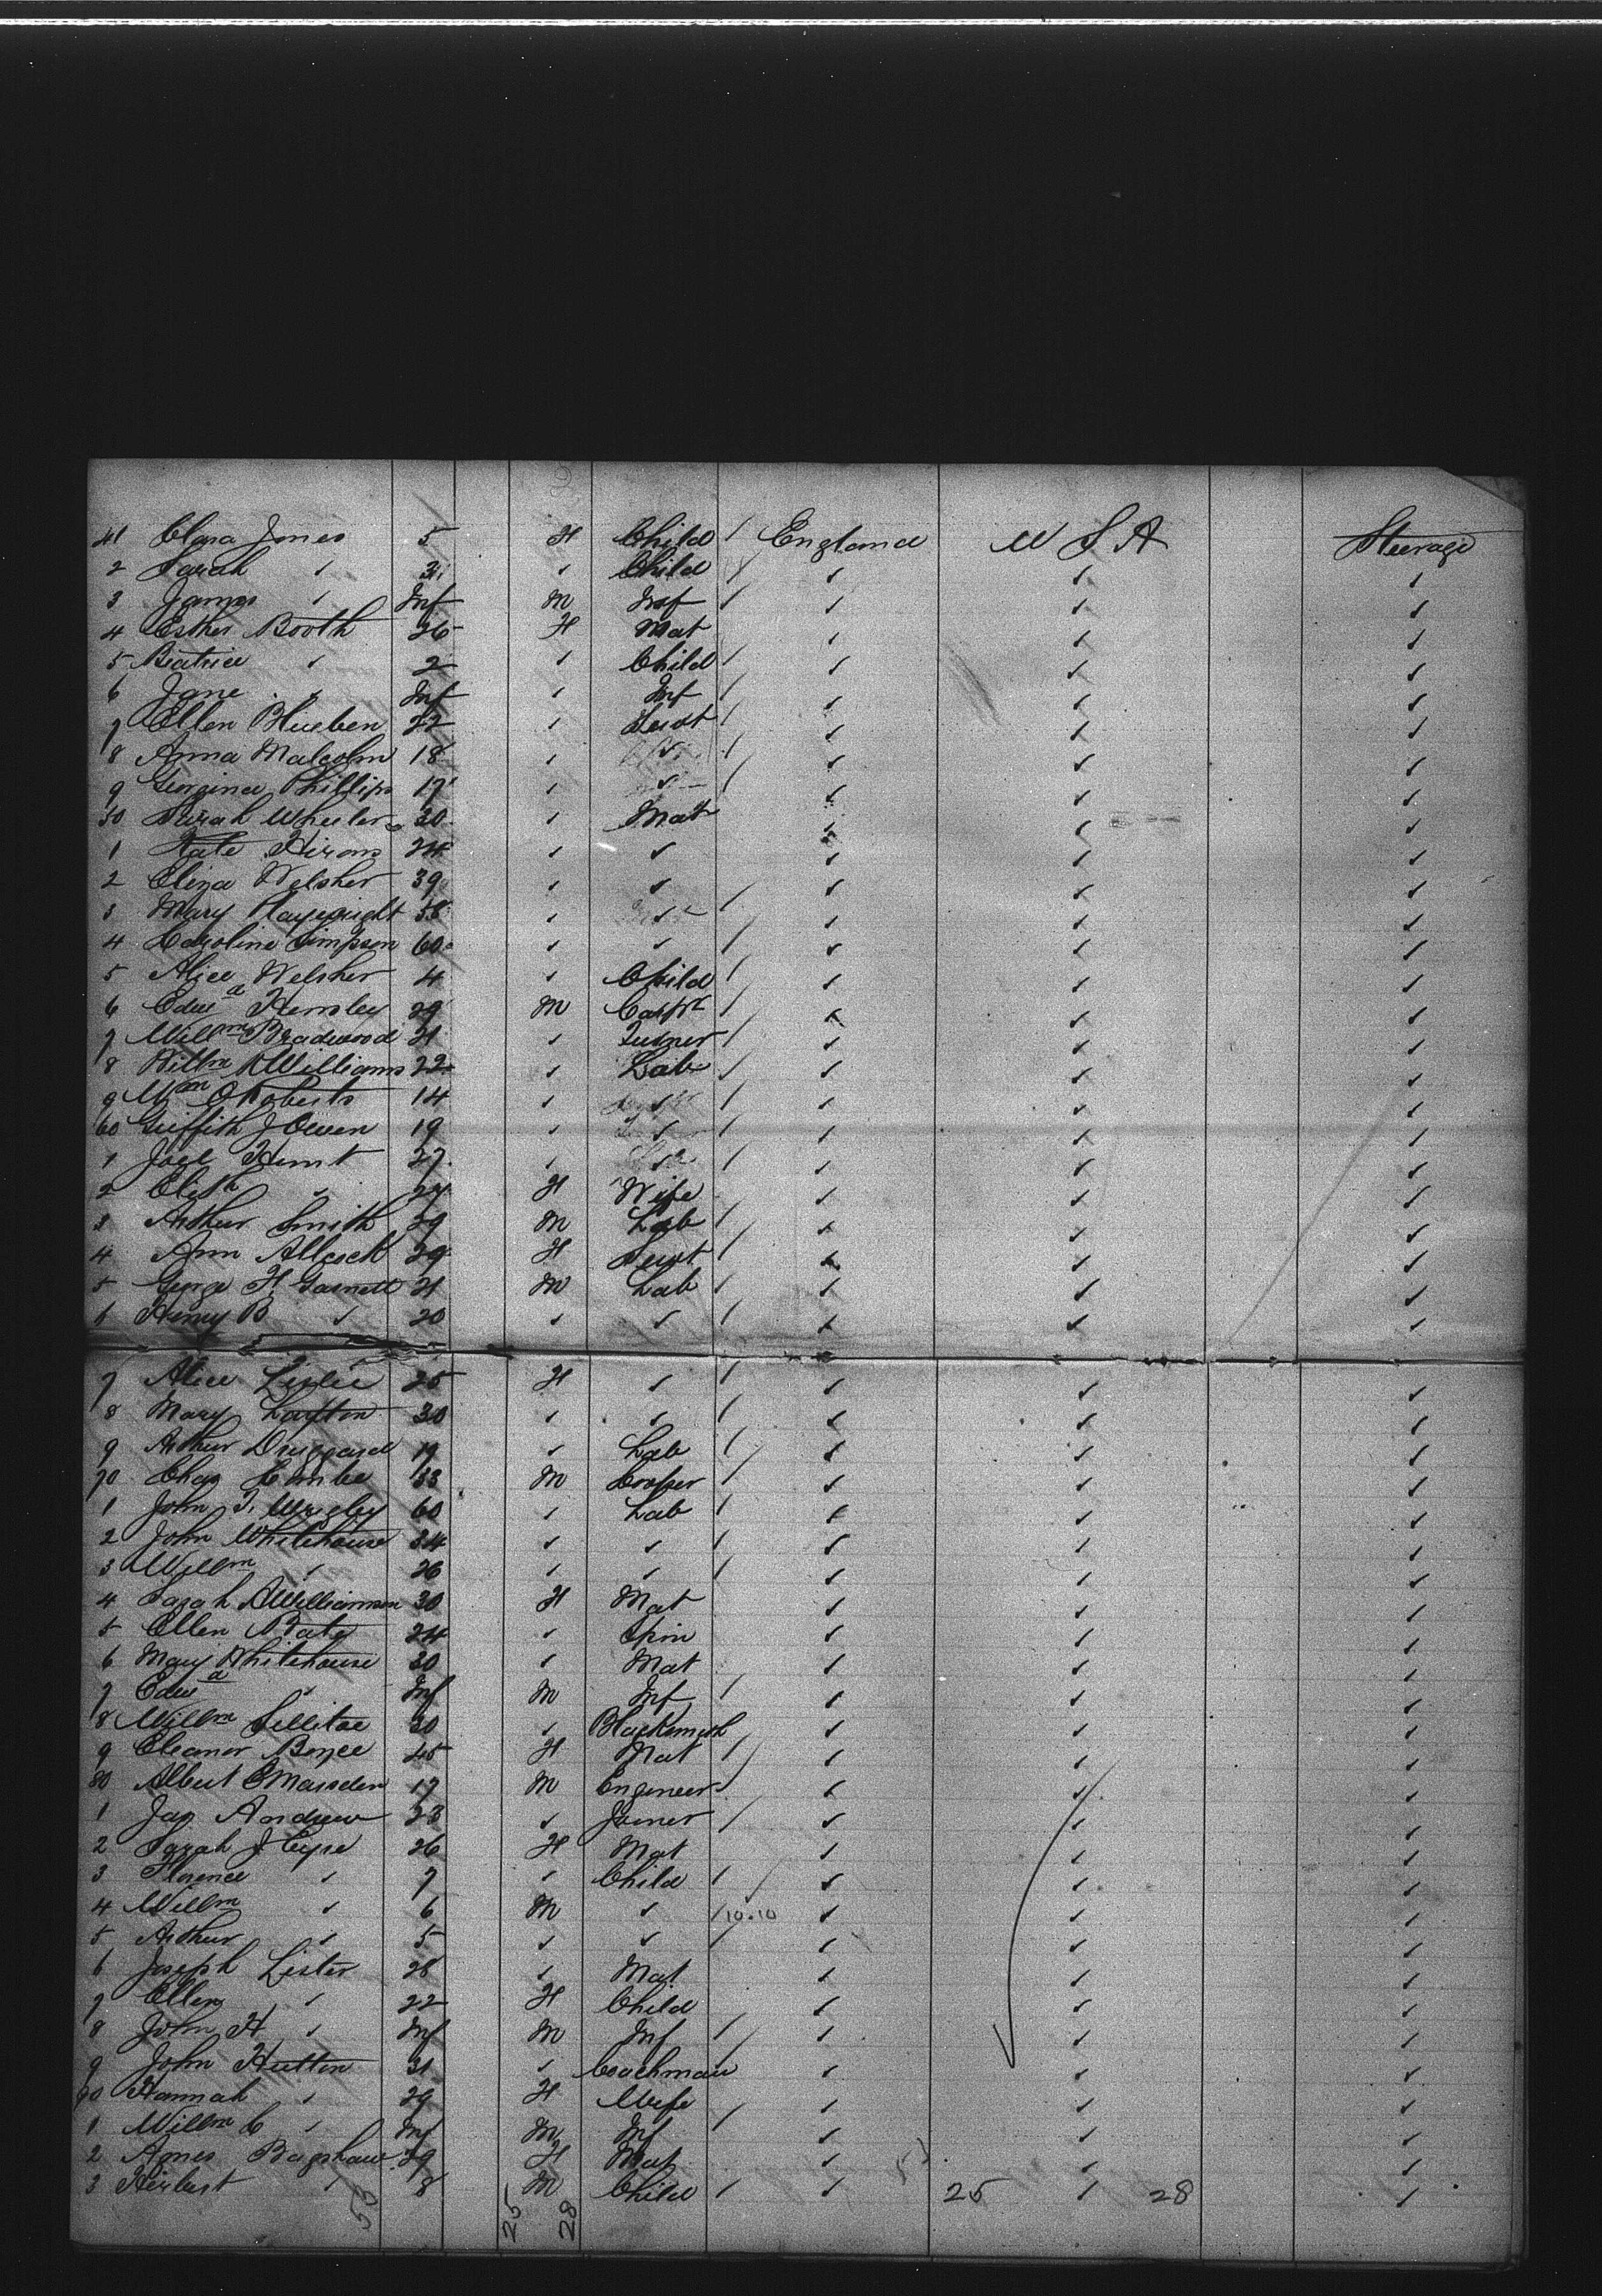 41 Clara Jones 5 H Child England U S A Steerage
2 Sarah " 3 " Child " " "
3 James " Inf M Inf " " "
4 Esther Booth 26 H Mat " " "
5 Beatrice " 2 " Child " " "
6 Jane " Inf " Inf " " "
7 Ellen 22 " Servt " " "
8 Anna Malcolm 18 " " " " "
9 Georgina Phillips 17 " " " " "
50 Sarah Wheeler 30 " Mat " " "
1 Kate Hirons 24 " " " " "
2 Eliza Welsher 39 " " " " "
3 Mary 58 " " " " "
4 Caroline Simpson 60 " " " " "
5 Alice Welsher 4 " Child " " "
6 Edwd Hemsley 29 M Carpr " " "
7 Willm Bradwood 21 " Turner " " "
8 Willm R Williams 22 " Lab " " "
9 Wm O Roberts 14 " " " " "
60 Griffith J Owen 19 " " " " "
1 Joel Hunt 27 " " " " "
2 Elizth " 27 H Wife " " "
3 Arthur Smith 29 M Lab " " "
4 Ann Allcock 29 H Servt " " "
5 George H. Garnett 21 M Lab " " "
6 Henry B " 20 " " " " "
7 Alice Leslie 25 H " " " "
8 Mary Layton 30 " " " " "
9 Arthur 19 " Lab " " "
70 Chas Combe 33 M Cooper " " "
1 John T. Wrigley 60 " Lab " " "
2 John Whitehouse 34 " " " " "
3 Willm " 26 " " " " "
4 Sarah A Williamson 30 H Mat " " "
5 Ellen Bate 24 " Spin " " "
6 Mary Whitehouse 30 " Mat " " "
7 Edwd " Inf M Inf " " "
8 Willm Sillitoe 30 " Blacksmith " " "
9 Eleanor Boyce 45 H Mat " " "
80 Albert E Marsden 17 M Engineer " " "
1 Jas Andrew 23 " Joiner " " "
2 Sarah J 26 H Mat " " "
3 Florence " 7 " Child " " "
4 Willm " 6 M " 10.10 " " "
5 Arthur " 5 " " " " "
6 Joseph Lister 28 " Mat " " "
7 Ellen " 22 H Child " " "
8 John H " Inf M Inf " " "
9 John Hutton 31 " Coachman " " "
90 Hannah " 29 H Wife " " "
1 Willm C " Inf M Inf " " "
2 Agnes Bagshaw 29 H Mat " " "
3 Herbert " 8 M Child " 25 " 28 "
53 25 28